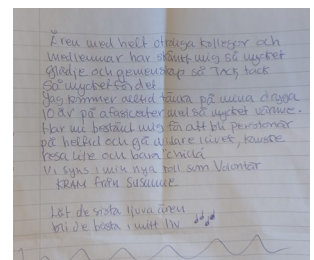 Åren med helt otroliga kollegor och
medlemmar har skänkt mig så mycket
glädje och gemenskap så Tack, tack
så mycket för det
Jag kommer alltid tänka på mina dryga
10 år på afasicenter med så mycket värme.
Har nu bestämt mig för att bli pensionär
på heltid och gå vidare i livet, kanske
resa lite och bara chilla
Vi syns i min nya roll som Volontär
KRAM från Susanne
Låt de sista ljuva åren
bli de bästa i mitt liv